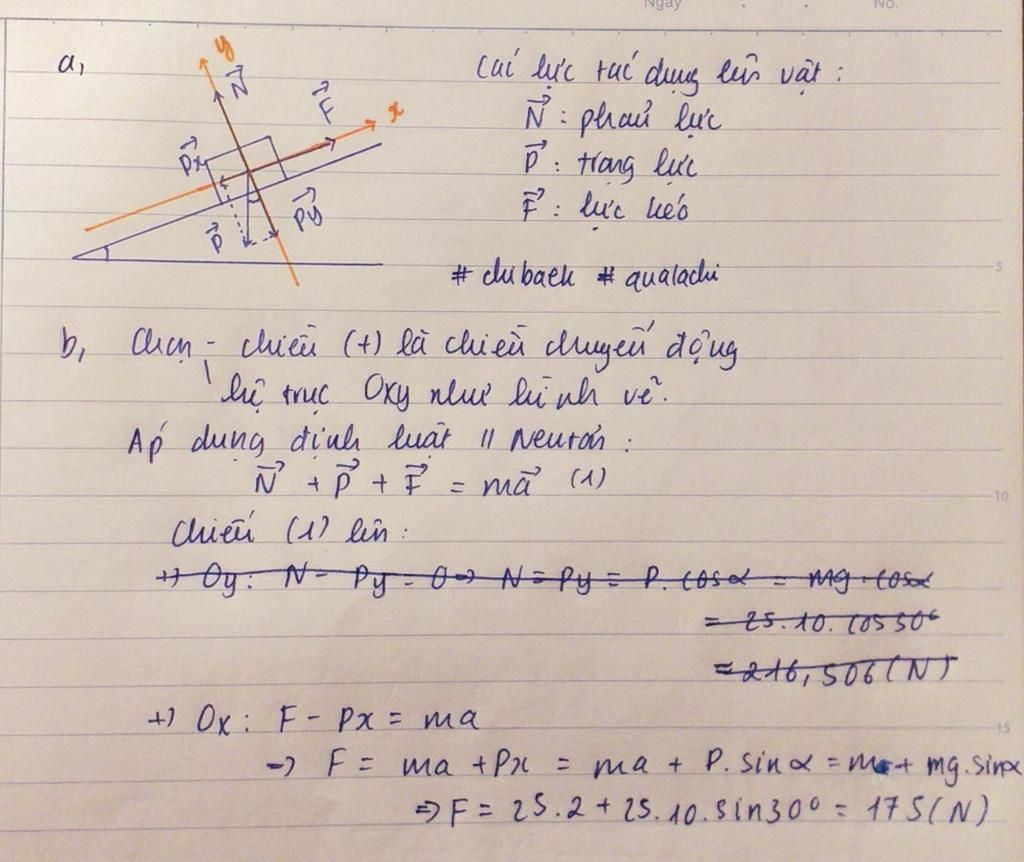 Ngày No.
a,
y
N→
F→
x
Px→
P→
Py→
Các lực tác dụng lên vật :
N→ : phản lực
P→ : trọng lực
F→ : lực kéo
# chibaek # qualachi
5
b, Chọn - chiều (+) là chiều chuyển động
\ hệ trục Oxy như hình vẽ.
Áp dụng định luật II Neutơn :
N→ + P→ + F→ = ma→ (1)
10
Chiếu (1) lên :
+) Oy : N - Py = 0 => N = Py = P. cosα = mg . cosα
= 25.10. cos30°
= 216,506 (N)
+) Ox : F - Px = ma
15
-> F = ma + Px = ma + P. sinα = m + mg.sinα
=> F = 25.2 + 25.10.sin30° = 175 (N)